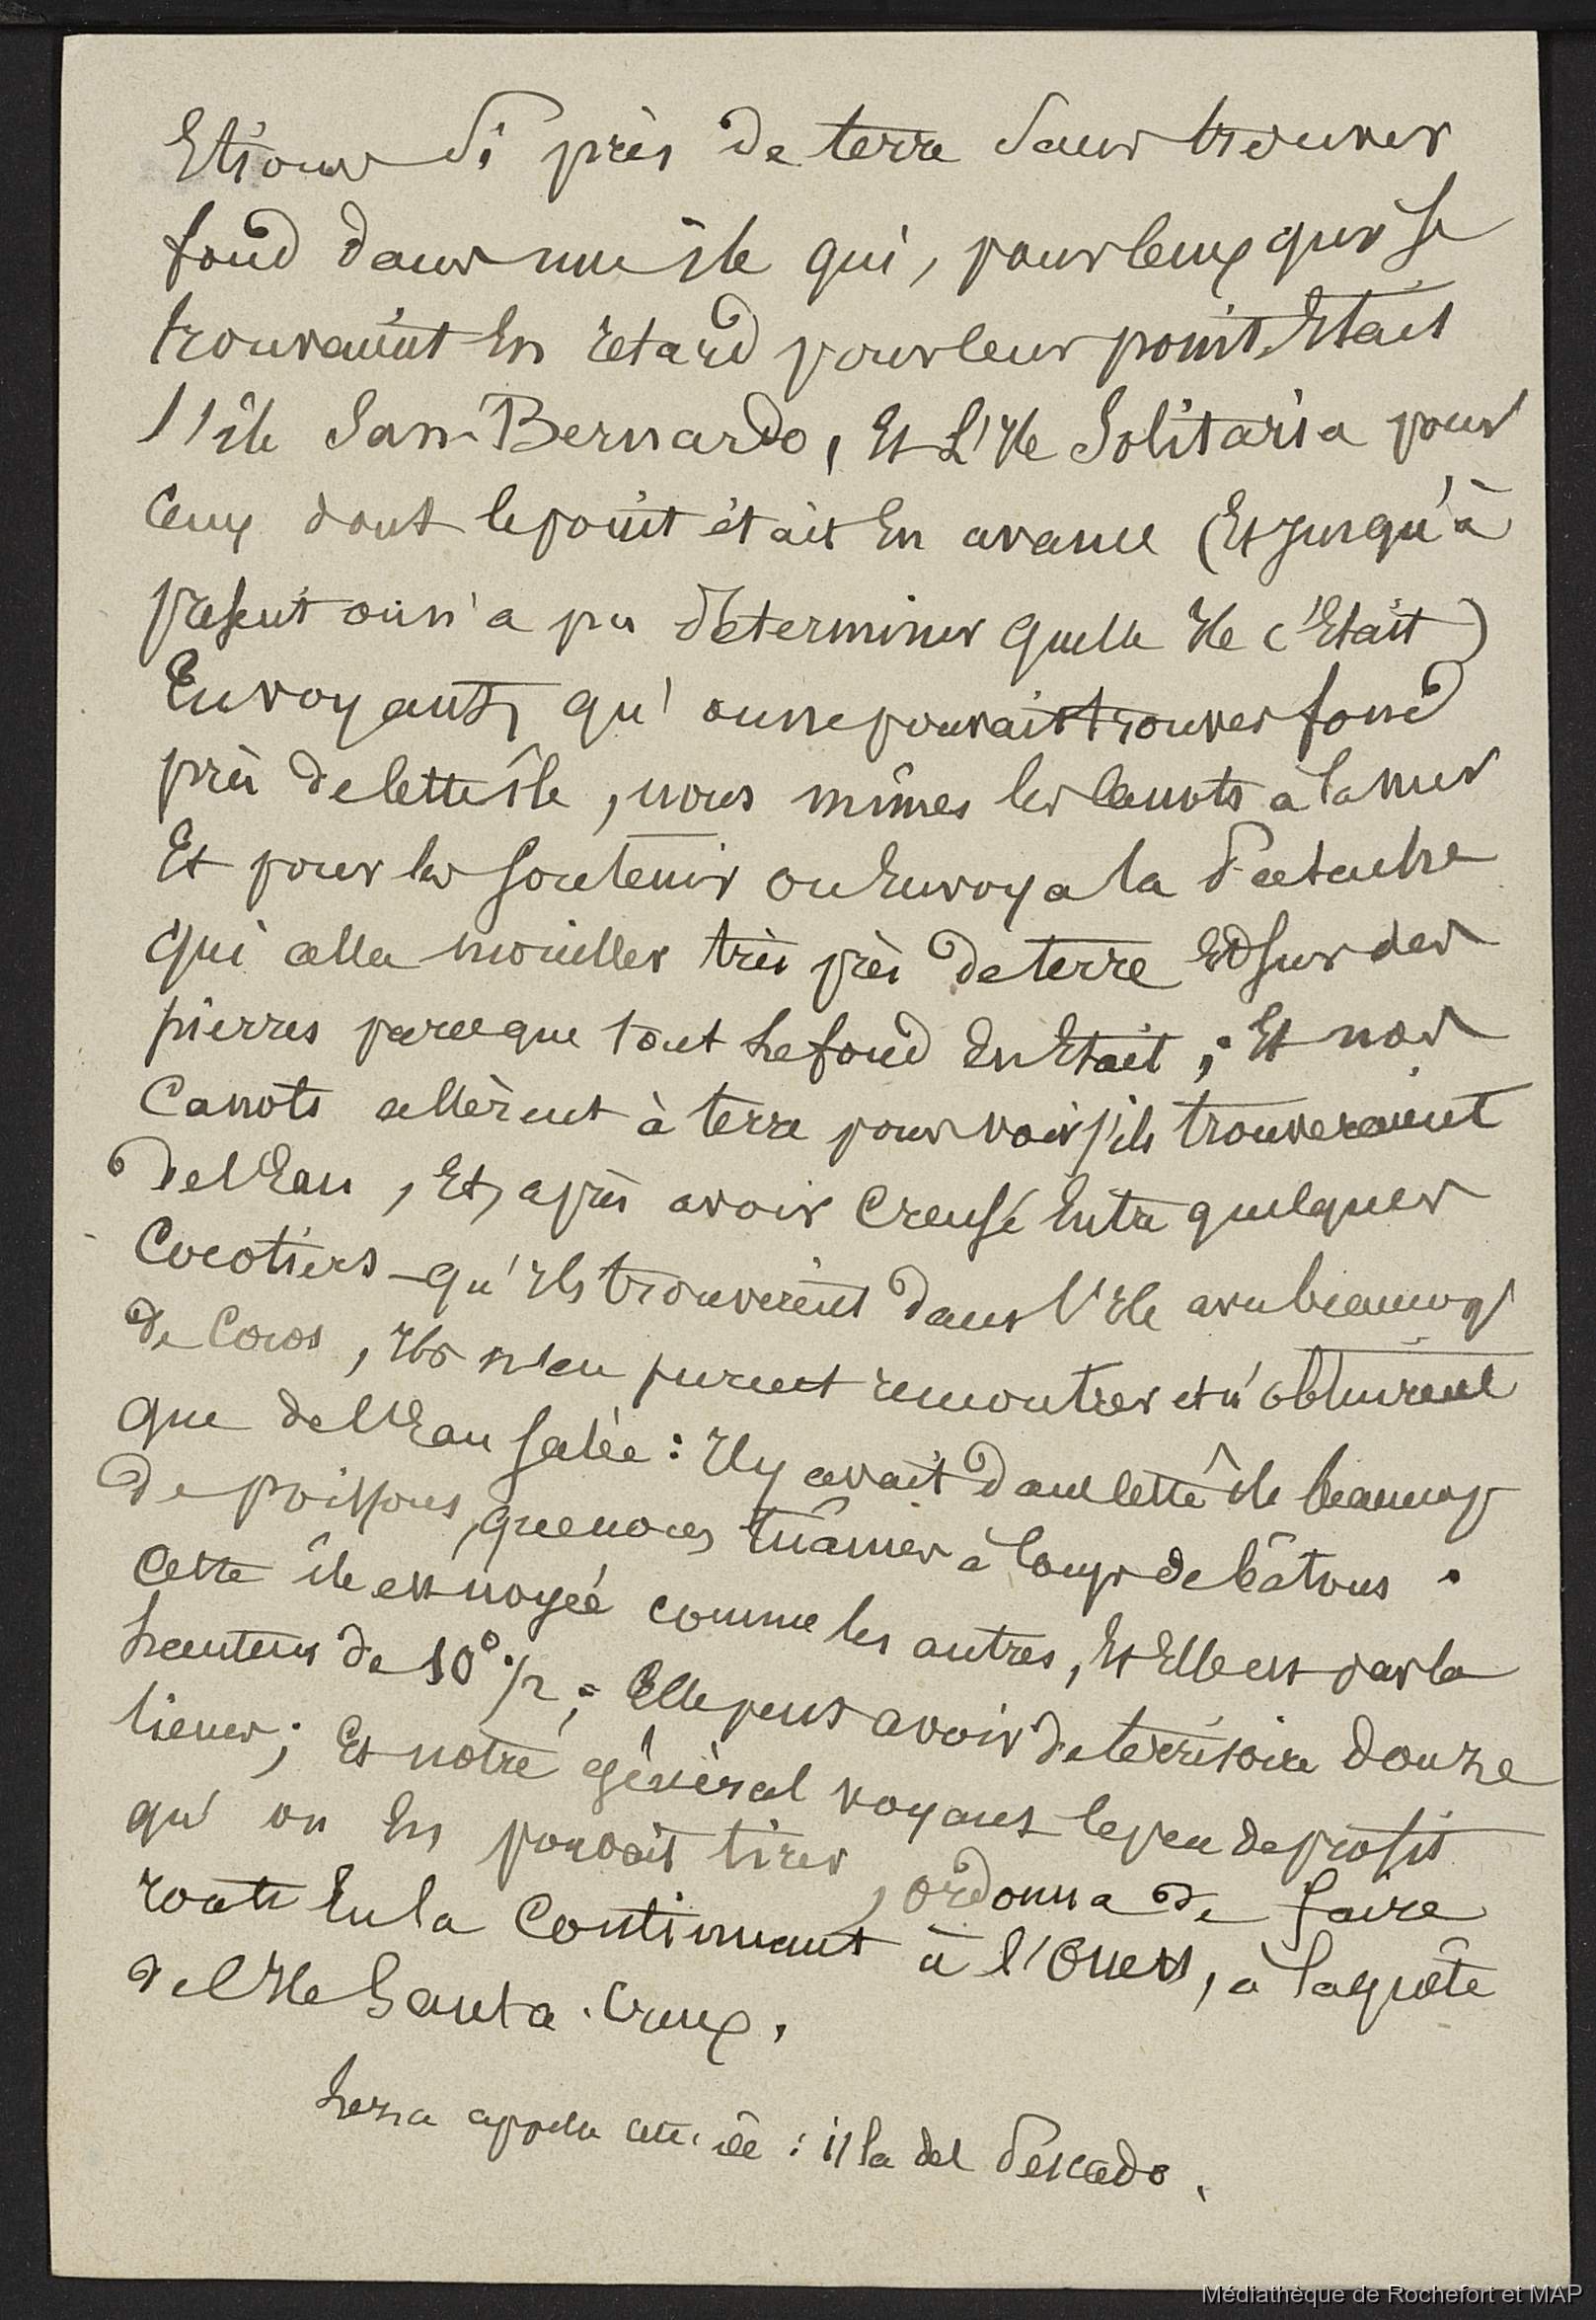 Etions si près de terre sans trouver
fond dans une île qui, pour ceux qui se
trouvaient En retard pour leur point Etait
l'île San-Bernardo, Et L'Ile Solitaria pour
Ceux dont le point était En avance (Et jusqu'à
présent on n'a pu déterminer quelle Ile c'Etait)
En voyant, qu'on ne pouvait trouver fond
près de cette île, nous mîmes les Canots à la mer
Et pour les soutenir on Envoya la Patache
qui alla mouiller très près de terre Et sur des
pierres parceque tout le fond En Etait; Et nos
Canots allèrent à terre pour voir s'ils trouveraient
de l'Eau, Et, après avoir Creusé Entre quelques
Cocotiers qu'Ils trouvèrent dans l'Ile avec beaucoup
de Cocos, Ils n'en purent rencontrer et n'obtinrent
que de l'Eau salée: Il y avait dans cette île beaucoup
de poissons, que nous tuâmes à Coups de bâtons.
Cette île est noyée comme les autres, Et Elle est par la
hauteur de 10° 1/2; Elle peut avoir de territoire douze
lieues; Et notre général voyant le peu de profit
qu'on En pouvait tirer, ordonna de faire
route En la Continuant à l'Ouest, à la quête
de l'Ile Santa-Cruz.
Leza appela cette île: isla del Pescado.
Médiathèque de Rochefort et MAP